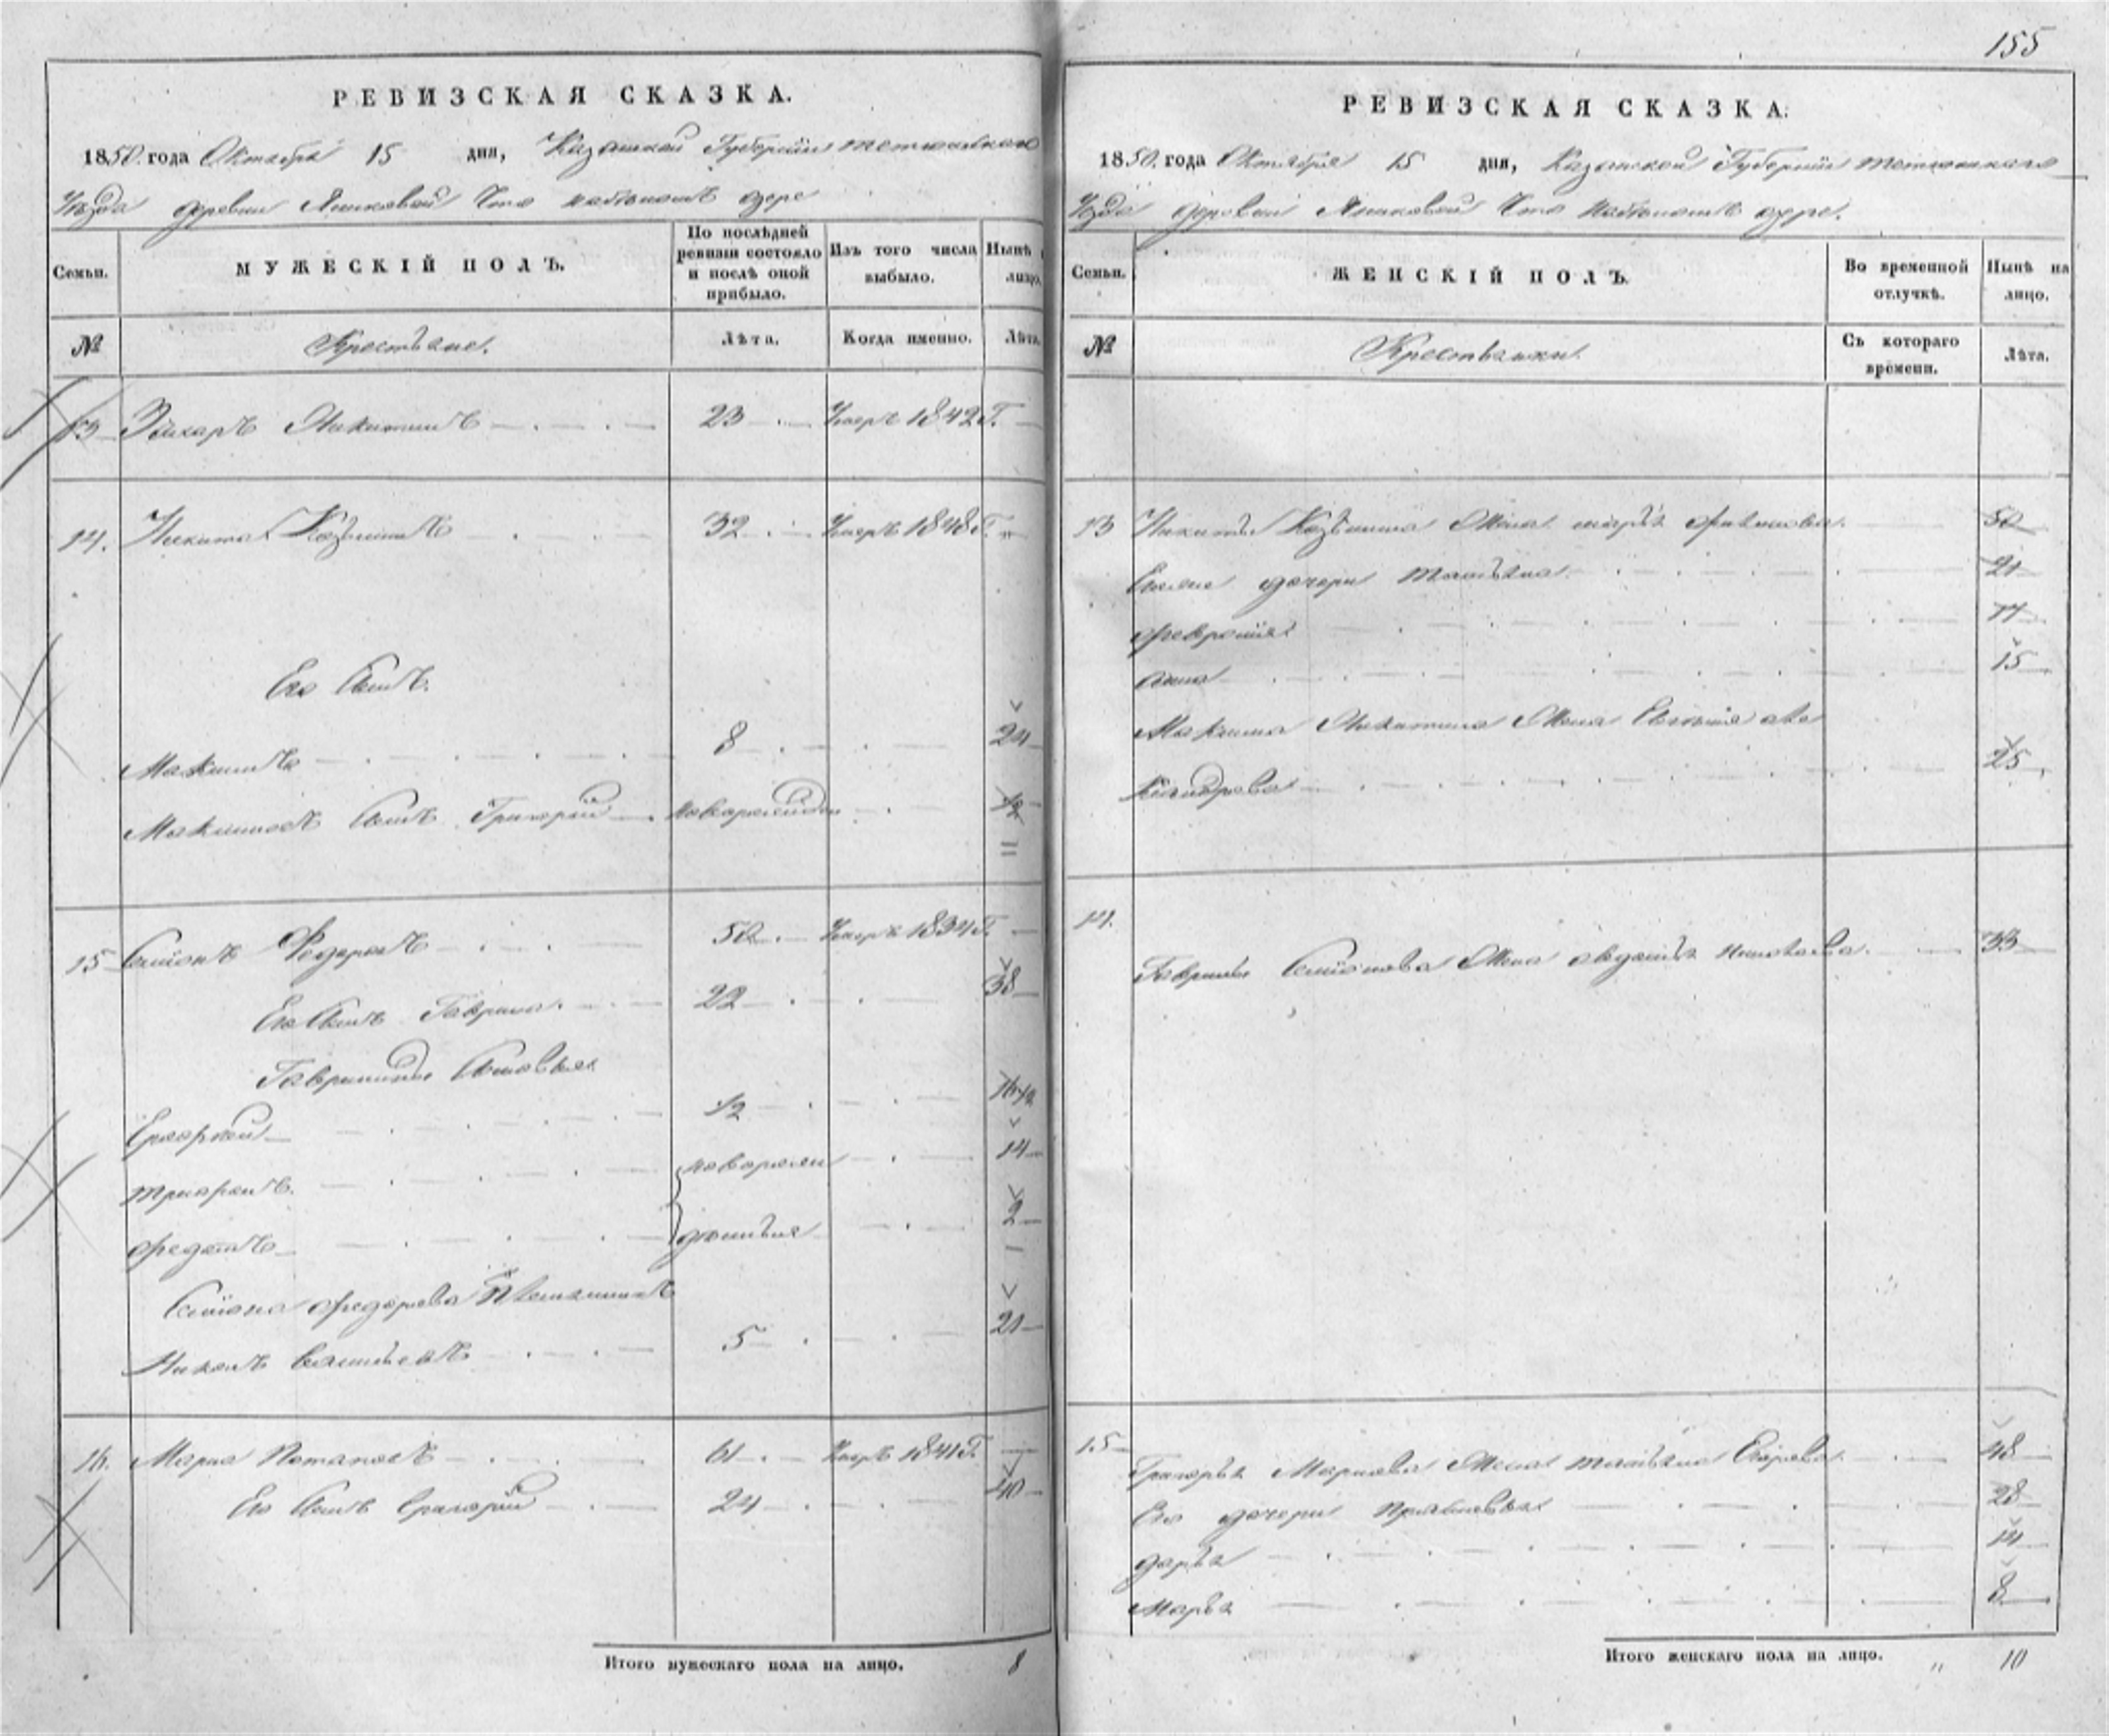 155
РЕВИЗСКАЯ СКАЗКА.
1850. года Октября 15 дня, Казанской Губернiи тетюшскаго
Уѣзда деревни Яниковой Что на озере
Семьи.
МУЖЕСКІЙ ПОЛЪ.
По послѣдней ревизіи состояло и послѣ оной прибыло.
Изъ того числа выбыло.
Нынѣ лицо.
№
Крестьяне.
Лѣта.
Когда именно.
Лѣта
13 Захаръ Никитинъ 23 Умеръ 1842 Г.
14. Никита Козминъ 32 Умеръ 1848 Г.
Его Сынъ.
Максимъ 8 24
Максимовъ Сынъ Григорiй новорожден 1/2
15 Семiонъ Федоровъ 52 Умеръ 1834 Г.
Его Сынъ Гаврила. 22 38
Гаврилины Сыновья
1/2 16 1/2
трифонъ. новорожден 14
федотъ 2
Семiона федорова Племянникъ
васильевъ 5 21
16. Марка Потаповъ 61 Умеръ 1841 Г.
Его Сынъ Григорiй 24 40
Итого мужескаго пола на лицо. 8
РЕВИЗСКАЯ СКАЗКА.
1850. года Октября 15 дня, Казанской Губернiи тетюшскаго
Уѣзда деревни Яниковой Что на озере.
Семьи.
ЖЕНСКІЙ ПОЛЪ.
Во временной отлучкѣ.
Нынѣ на лицо.
№
Крестьянки.
Съ котораго времени.
Лѣта.
13 Никиты Козьмина Жена марья 50
дочери татьяна 21
феврония 17
анна 15
Максима Никитина Жена але
ксандрова 25
14.
Гаврилы Семiонова Жена авдотья 33
15 Григорья Маркова Жена татьяна Егорова 48
Его дочери 28
дарья 14
Марья 8
Итого женскаго пола на лицо. " 10